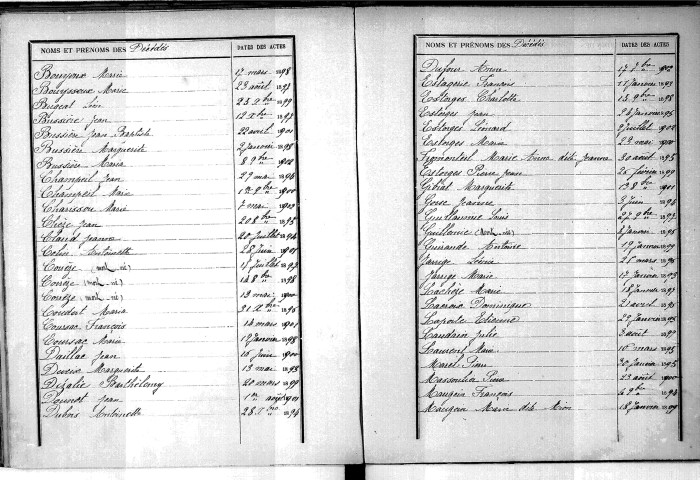 NOMS ET PRÉNOMS DES Décédés DATES DES ACTES
Bouyoux Marie 17 mars 98
Bouyssoux Marie 23 août 93
Brugeat Léon 25 Xbre 99
Bussière Jean 12 Xbre 97
Bussière Jean Baptiste 22 avril 1901
Bussière Marguerite 2 janvier 98
Bussière Maria 8 9bre 1902
Champeil Jean 29 mai 94
Champeil Marie 1900
Charissou Marie 7 mai 1903
Chièze Jean 20 8bre 95
Claud Jeanne 20 juillet 94
Antoinette 28 juin 1901
Couège (mort-né) 11 juillet 93
Couège (mort-né) 14 8bre 98
Couège (mort-né) 13 mai 1900
Coudert Maria 31 Xbre 95
Coursac François 14 mars 1901
Coursac Marie 12 janvier 98
Daillac Jean 16 juin 1900
Marguerite 13 mai 98
Barthélemy 20 mars 99
Jean 1er août 1901
Dubois Antoinette 28 Xbre 94
NOMS ET PRÉNOMS DES Décédés DATES DES ACTES
Dufour Anna 17 7bre 1902
Estagerie François 11 janvier 98
Estorges Charlotte 15 9bre 98
Estorges Jean 26 janvier 95
Estorges Léonard 9 juillet 1902
Estorges Maria 22 mai 1900
Fromenteil Marie Anne dite Jeanne 30 août 95
Estorges Pierre Jean 26 février 99
Gibiat Marguerite 13 8bre 1901
Gorse Jeanne 3 juin 94
Guillaume Louis 27 9bre 93
Guillaume (mort-né) 4 janvier 95
Guirande Antoine 19 janvier 99
Jarrige Léonie 21 mars 96
Jarrige Marie 17 janvier 1903
Lachièze Marie 18 janvier 97
Lacroix Dominique 21 avril 95
Laporte Etienne 29 janvier 95
Julie 3 août 97
Laurent Marie 10 mars 95
Marel Pierre 30 janvier 95
Massoulier Pierre 23 août 1900
Maugein François 6 9bre 94
Maugein Marie dite 18 janvier 1903